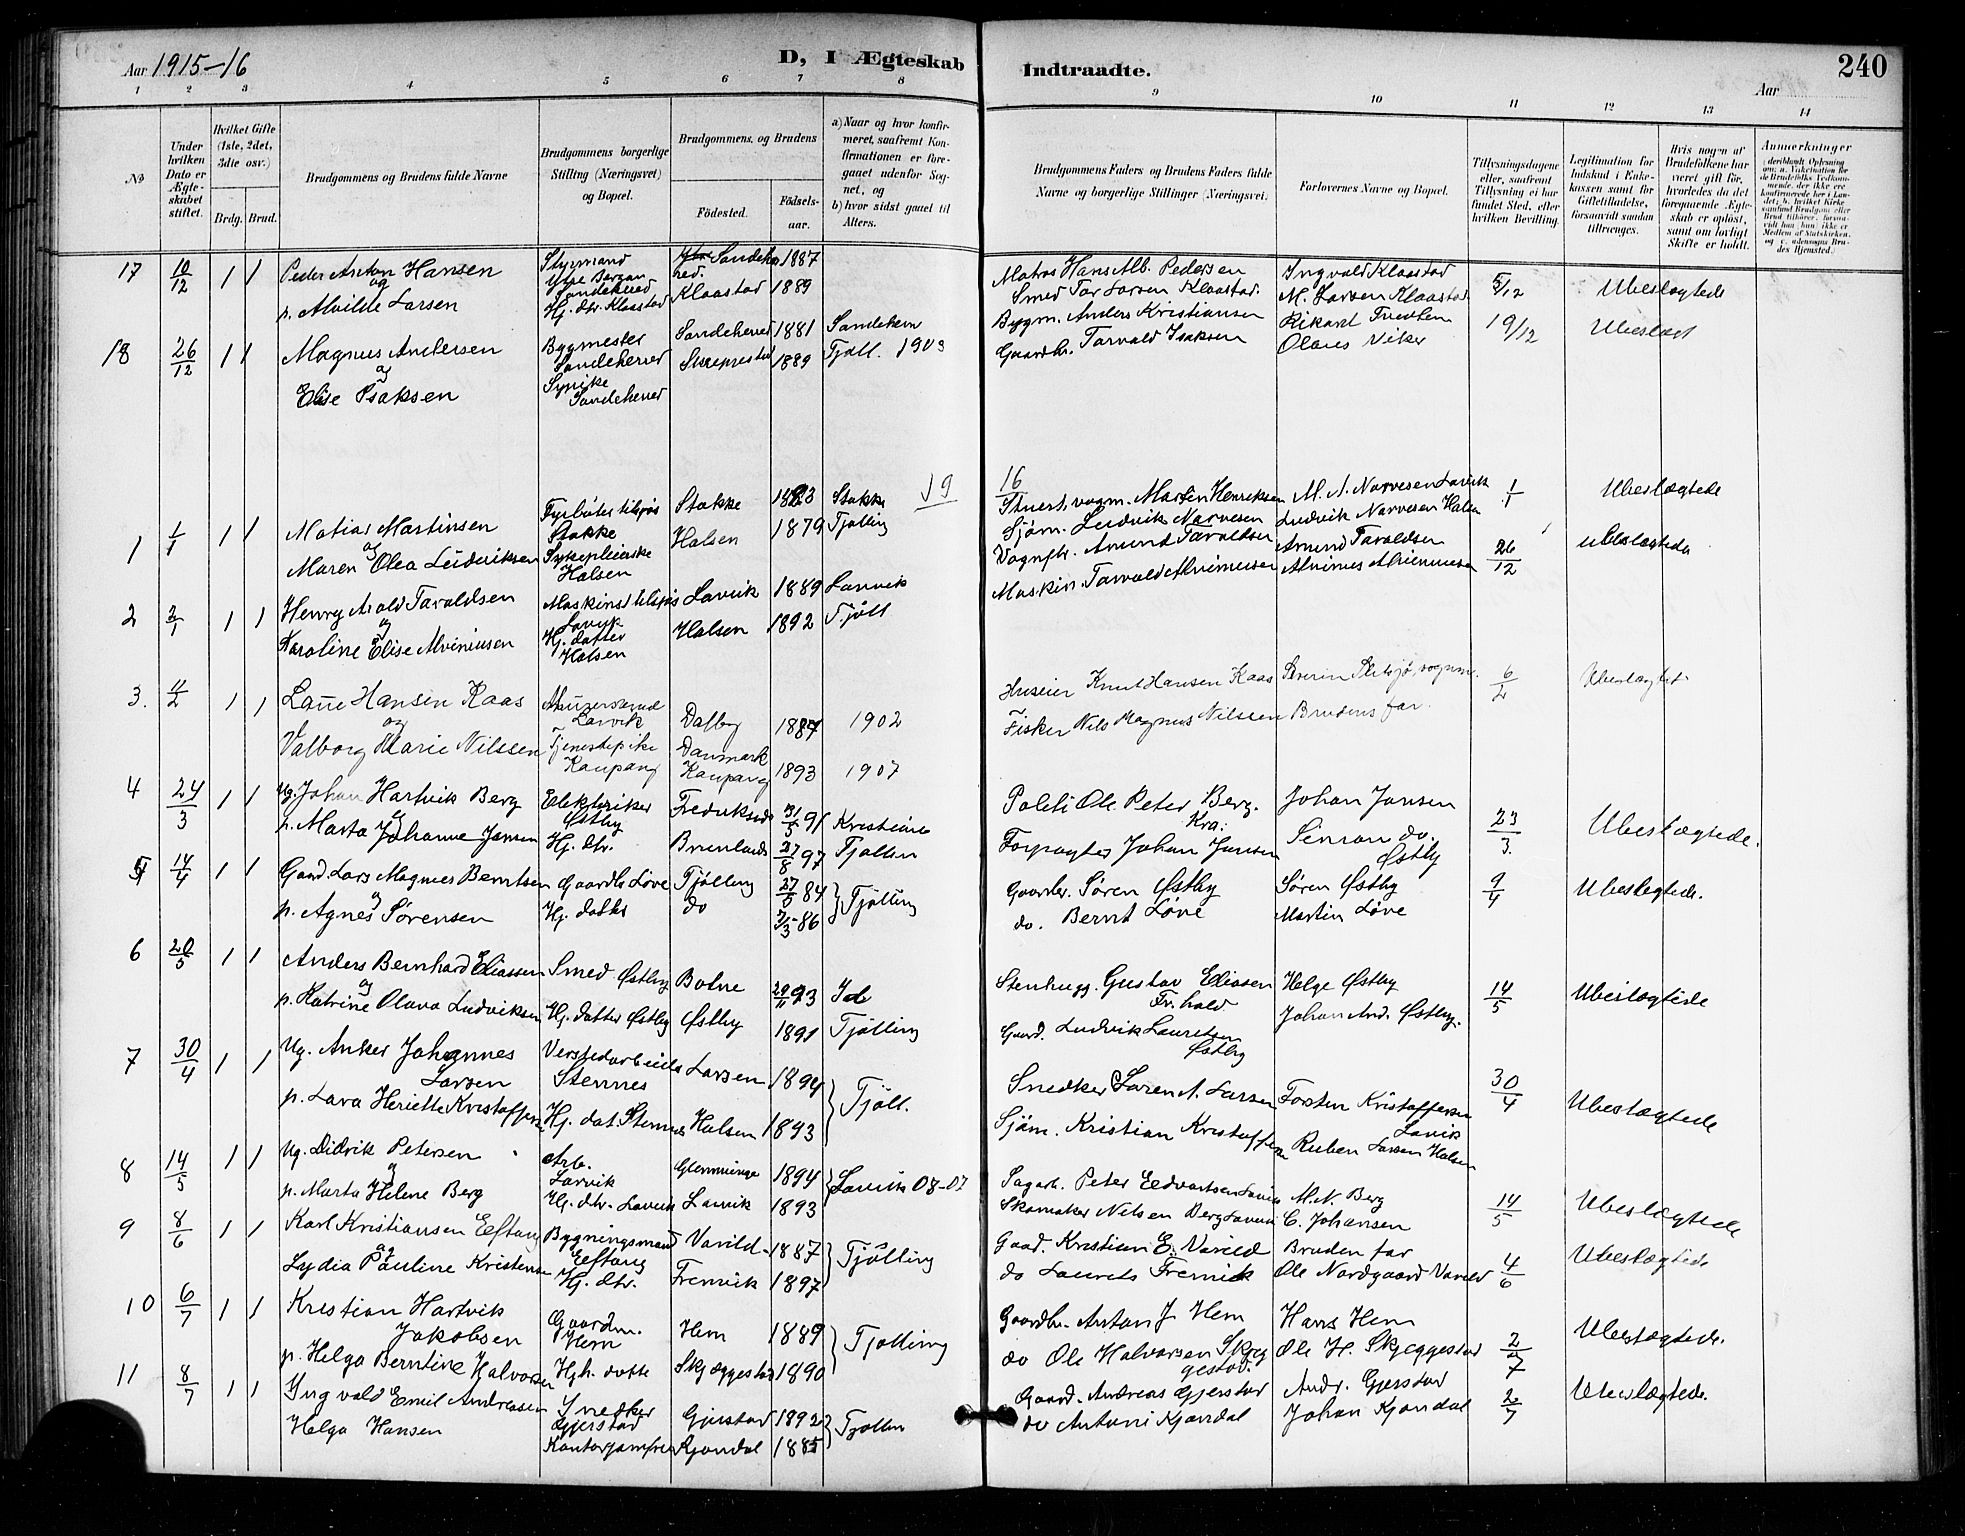 Aar 1915-16
D, I Ægteskab Indtraadte.
240
Aar
1 2 3 4 5 6 7 8 9 10 11 12 13 14
No
Under hvilken Dato er Ægteskabet stiftet.
Hvilket Gifte (1ste, 2det, 3die osv.)
Brdg. Brud.
Brudgommens og Brudens fulde Navne
Brudgommens borgerlige Stilling (Næringsvei) og Bopæl.
Brudgommens og Brudens
Födested.
Födselsaar.
a) Naar og hvor konfirmeret, saafremt Konfirmationen er foregaaet udenfor Sognet, og
b) hvor sidst gaaet til Alters.
Brudgommens Faders og Brudens Faders fulde Navne og borgerlige Stillinger (Næringsvei.
Forlovernes Navne og Bopæl.
Tillysningsdagene eller, saafremt Tillysning ei har fundet Sted, efter hvilken Bevilling.
Legitimation for Indskud i Enkekassen samt for Giftetilladelse, forsaavidt saadan tiltrænges.
Hvis nogen af Brudefolkene har været gift för, hvorledes da det foregaaende Ægteskab er oplöst, samt om lovligt Skifte er holdt.
Anmerkninger
17 10/12 1 1 Peder Anton Hansen Styrmand Sandeherred. 1887 Matros Hans Alb. Pedersen Ingvald Klaastad 5/12 Ubeslægtede
og
p. Alvilde Larsen Hj. dtr. Klaastad Klaastad 1889 Smed Tor Larsen Klaastad. M. Larsen Klaastad
18 26/12 1 1 Magnus Andersen Bygmester Sandeherred Sandeherred 1881 Sandeherr Bygm. Anders Kristiansen 19/12 Ubeslægt
og
Elise Isaksen Sandeherred 1889 Tjöll. 1903 Gaardbr. Torvald Isaksen Olaus Viker
19 16
1 1/1 1 1 Matias Martinsen Fyrböter tilsjös Stokke Stokke 1883 Stokke Martin Henriksen M. A. Narvesen Larvik 1/1 Ubeslægtede
og
Maren Olea Ludviksen Sykepleierske Halsen Halsen 1879 Tjölling Sjöm. Ludvik Narvesen Ludvik Narvesen Halsen
2 2/1 1 1 Henry Arold Taraldsen Maskinst tilsjös Larvik Larvik 1889 Larvik Vognfbr. Amund Taraldsen Amund Taraldsen 26/12 Ubeslægtede
og
Karoline Elise Alviniusen Hj. datter Halsen Halsen 1892 Tjöll Maskin. Torvald Alviniusen
3. 11/2 1 1 Laue Hansen Kaas Larvik Dalby 1887 1902 Huseier Knut Hansen Kaas 6/2 Ubeslægtet
og
Valborg Marie Nilssen Tjenestepike Kaupang Danmark Kaupang 1893 1907 Fisker Nils Magnus Nilssen Brudens far.
4 24/3 1 1 Ug. Johan Hartvik Berg Elektriker Østby 31/5 91 Kristiania Politi Ole Peter Berg. Kra: Johan Jansen 23/3. Ubeslægtede.
og
p. Marta Johanne Jansen Hj. dtr. Brunlanes 27/8 97 Tjöllin Forpagter Johan Jansen do. Østby
5 14/4 1 1 Gaard. Lars Magnus Berntsen Gaardbr Løve Tjölling 27/5 84 Tjölling Gaardbr. Søren Østby Søren Østby 9/4 Ubeslegtede.
og
p. Agnes Sørensen Hj. datter do 7/3-86 do. Bernt Løve Martin Løve
6 20/5 1 1 Anders Bernhard Eliassen Smed Østby Botne 29/11 93 Ide Stenhugg. Gustav Eliassen Fr.hald Helge Østby 14/5 Ubeslægtede
og
p. Katrine Olava Ludviksen Hj. datter Østby Østby 1891 Tjölling Gaard. Ludvik Lauretsen Østby Johan And. Østby.
7 30/4 1 1 Ug. Anker Johannes Larsen Verstedarbeider Stennes Larsen 1894 Tjöll. Snedker Søren A. Larsen Torsten Kristoffersen Larvik 30/4 Ubeslægtede
p. Lava Heriette Kristoffersen Hj. dat. Stennes Halsen 1893 Sjöm. Kristian Kristoffersen Ruben Larsen Halsen
8 14/5 1 1 Ug. Didrik Petersen Arb. Larvik Glemminge 1894 Larvik 08-07 Sagarb. Peter Edvartsen Larvik M. N. Berg 14/5 Ubeslægtede
og
p. Marta Helene Berg Hj. dtr. Larvik Larvik 1893 Skomaker Nilsen Berg Larvik C. Johansen
9 8/6 1 1 Karl Kristiansen Eftang Bygningsmand Eftang Varild 1887 Tjølling Gaad. Kristian E. Varild Bruden far 4/6 Ubeslægtede
og
Lydia Pauline Kristensen Hj. dtr. Fremvik 1897 do Laurets Fremvik Ole Nordgaard Varild
10 6/7 1 1 Kristian Hartvik Jakobsen Gaardm. Hem Hem 1889 Tjølling Gaardbr. Anton J. Hem Hans Hem 2/7 Ubeslægtede.
p. Helga Berntine Halvorsen Hjh. datte Skjæggestad 1890 do Ole Halvorsen Skjeggestad. Ole H. Skjeggestad
11 8/7 1 1 Yngvald Emil Andreasen Snedker Gjerstad Gjerstad 1892 Tjøllin Gaard. Andreas Gjerstad Andr. Gjerstad 2/7 Ubeslægtede.
Helga Hansen Kontorjomfru Kjøndal 1885 do Antoni Kjøndal Johan Kjøndal